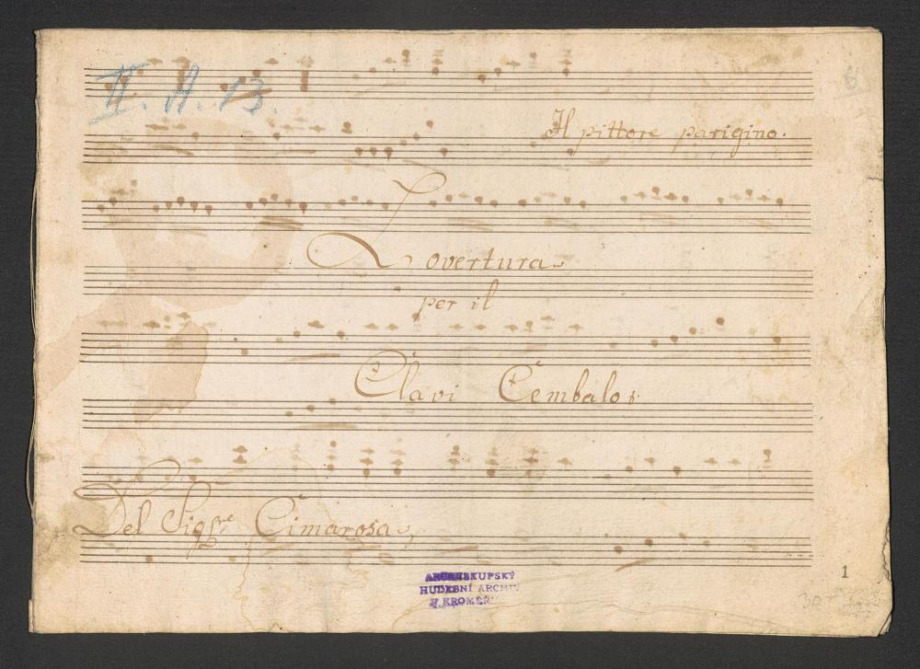 II. A. 13.
8
Il pittore parigino.
L'overtura
per il
Clavi Cembalo
Del Sigre Cimarosa
ARCIBISKUPSKÝ
HUDEBNÍ ARCHIV
V KROMĚŘ
1